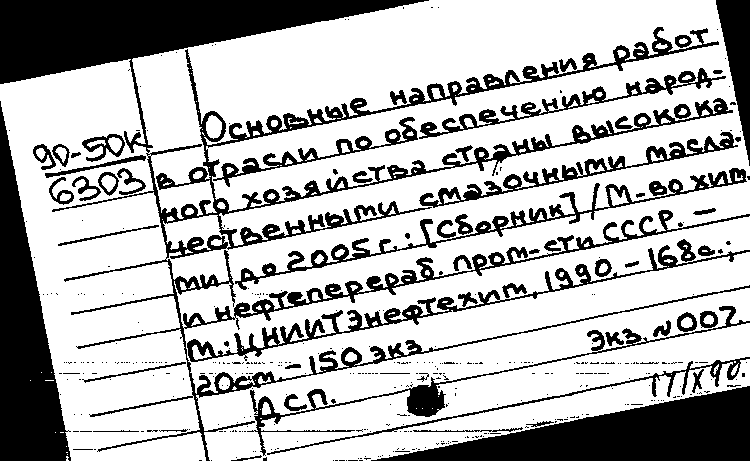 90-50К
6303
Основные направления работ
в отрасли по обеспечению народ-
ного хозяйства страны высокока-
чественными смазочными масла-
ми до 2005 г.: [Сборник] / М-во хим.
и нефтеперераб. пром-сти СССР. —
М.: ЦНИИТЭнефтехим, 1990. - 168с.;
20см. - 150 экз. Экз. №007.
ДСП.
17/X 90.